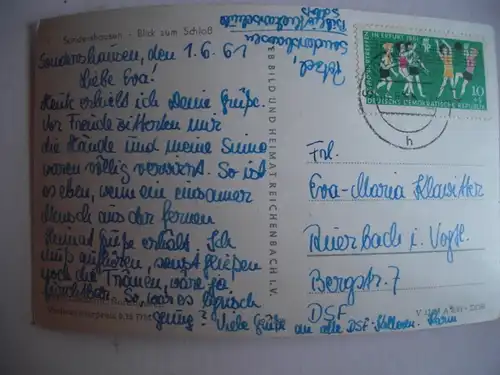 Sondershausen - Blick zum Schloß
Sondershausen, den 1.6.61
Liebe Eva!
Heute erhielt ich Deine Grüße.
Vor Freude zitterten mir
die Hände und meine Sinne
waren völlig verwirrt. So ist
es eben, wenn ein einsamer
Mensch aus der fernen
Heimat Grüße erhält. Ich
muß aufhören, sonst fließen
noch die Tränen, wäre ja
furchtbar. So, war es logisch
genug? Viele Grüße an alle DSF-Kollegen. Karin
VEB BILD UND HEIMAT REICHENBACH I. V.
Sondershausen
IN ERFURT 1961
10
DEUTSCHE DEMOKRATISCHE REPUBLIK
h
Frl.
Eva-Maria Klausitzer
Auerbach i. Vogtl.
Bergstr. 7
DSF